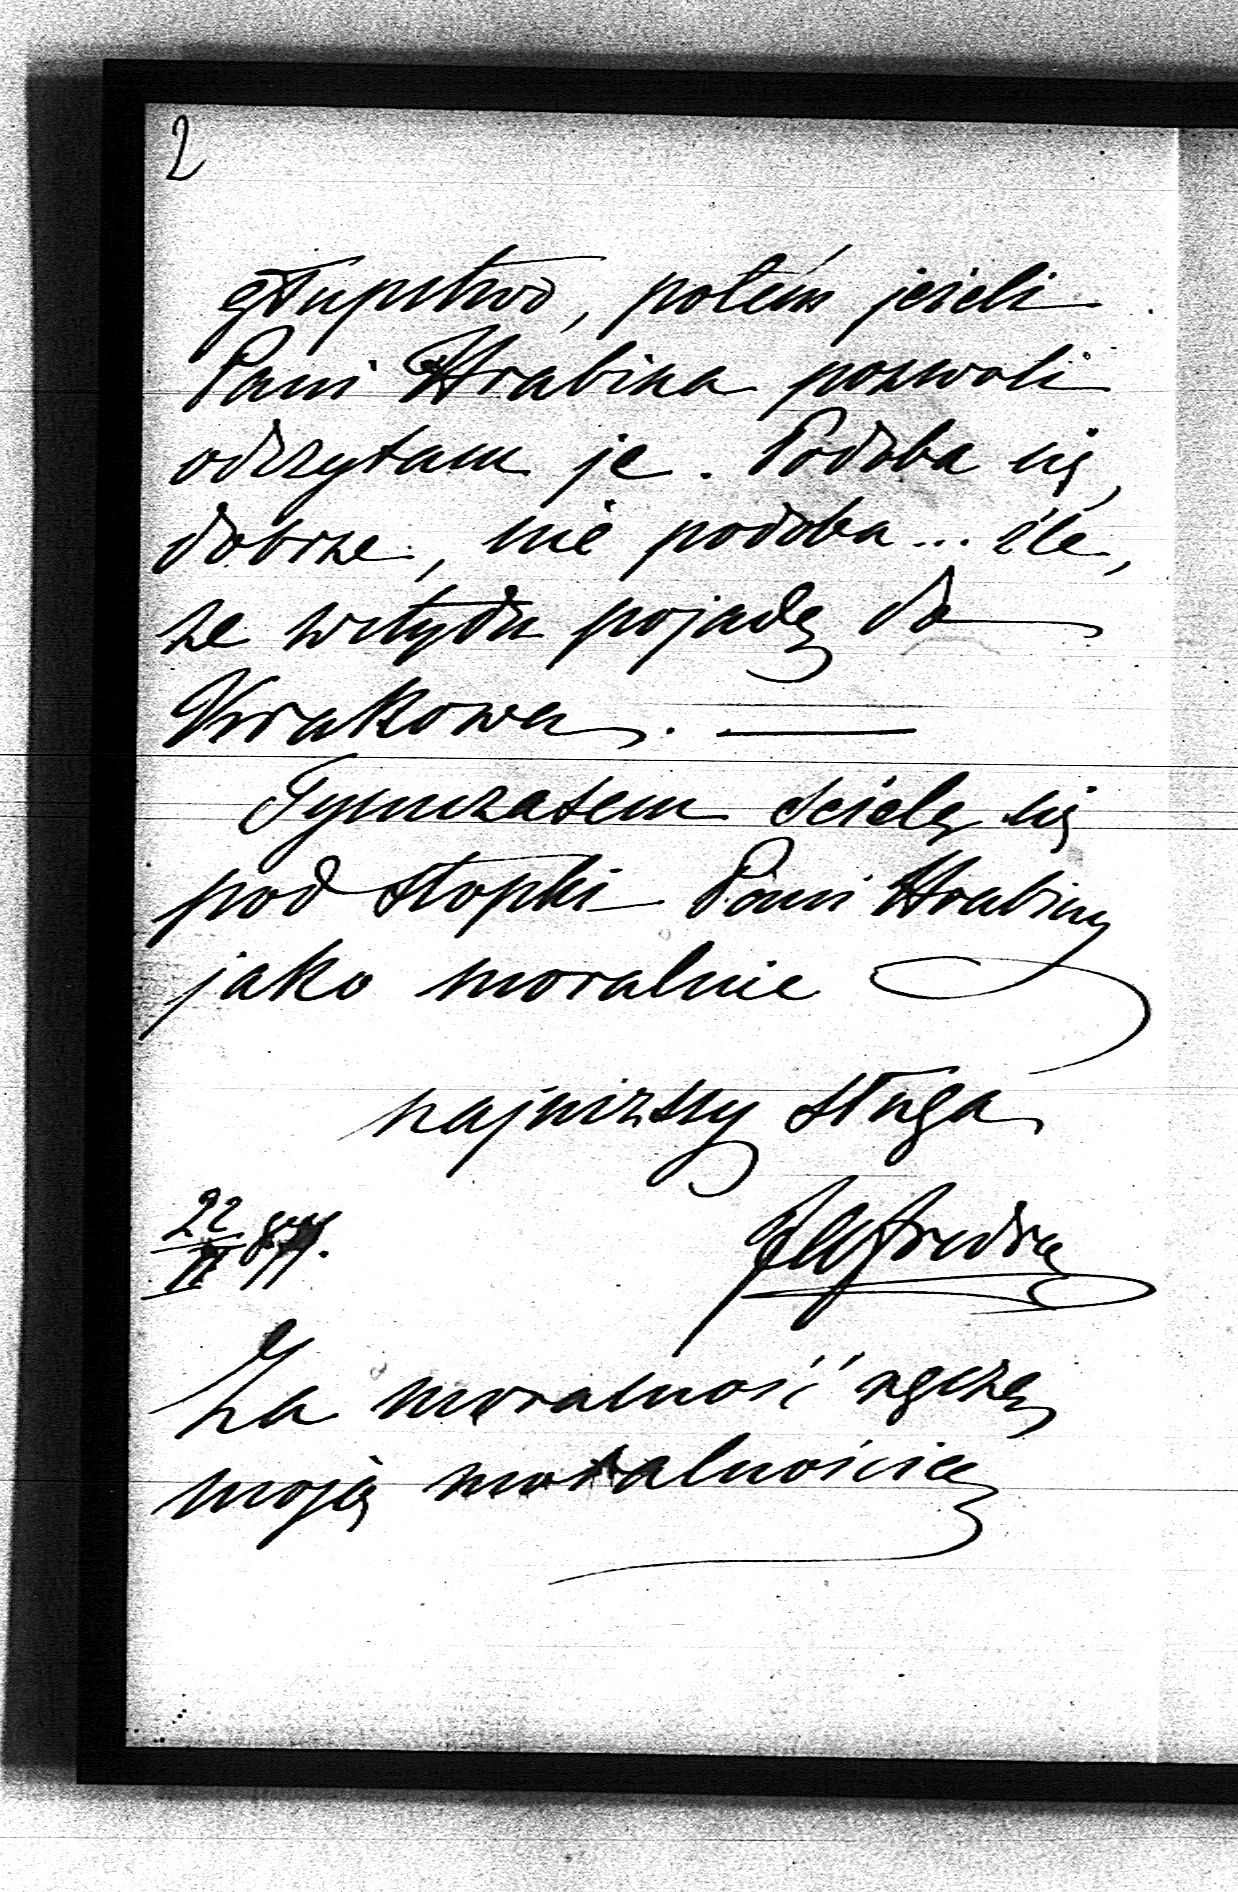 2
głupstwo, potém jeżeli
Pani Hrabina pozwoli
odczytam je. Podoba się,
dobrze, nie podoba... źle,
ze wstydu pojadę do
Krakowa. —
Tymczasem ścielę się
pod stopki Pani Hrabiny
jako moralnie
najniższy sługa
22/II 877.
JAFredro
Za moralność ręczę
moją moralnością